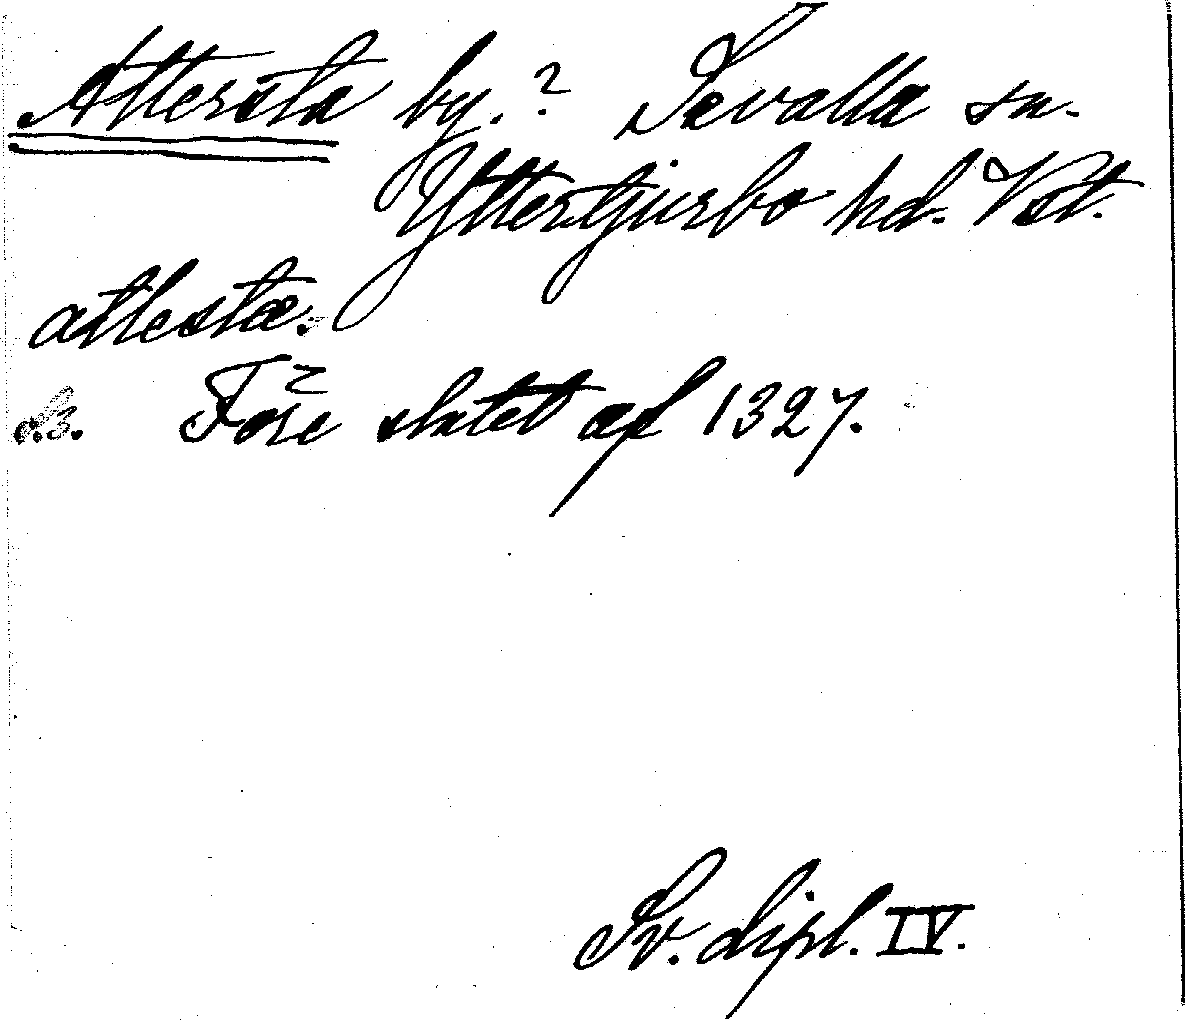 Attersta by.? Sevalla sn.
Yttertjurbo hd. Vst.
attestæ.
s.3. Före slutet af 1327.
Sv. dipl. IV.